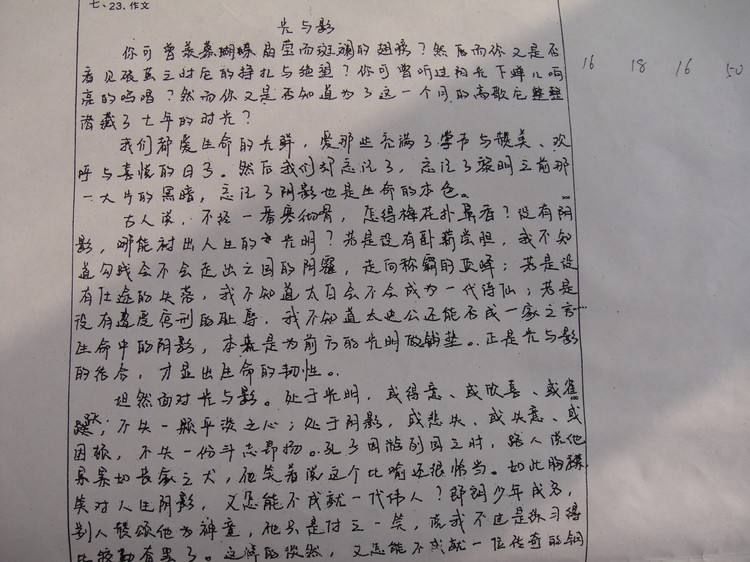 七、23.作文
光与影
你可曾羡慕蝴蝶晶莹而斑斓的翅膀？然后而你又是否
看见破茧之时它的挣扎与绝望？你可曾听过阳光下蝉儿响
亮的鸣唱？然而你又是否知道为了这一个月的高歌它整整
潜藏了七年的时光？
我们都爱生命的光鲜，爱那些充满了掌声与赞美、欢
呼与喜悦的日子。然后我们却忘记了，忘记了黎明之前那
一大片的黑暗，忘记了阴影也是生命的本色。
古人说，不经一番寒彻骨，怎得梅花扑鼻香？没有阴
影，哪能衬出人生的光明？若是没有卧薪尝胆，我不知
道勾践会不会走出亡国的阴霾，走向称霸的巅峰；若是没
有仕途的失落，我不知道太白会不会成为一代诗仙；若是
没有遭度宫刑的耻辱，我不知道太史公还能否成一家之言…
生命中的阴影，本就是为前方的光明做铺垫。正是光与影
的结合，才显出生命的韧性。
坦然面对光与影。处于光明，或得意、或欣喜、或雀
跃，不失一颗平淡之心；处于阴影，或悲失、或失意、或
困顿，不失一份斗志昂扬。孔子周游列国之时，路人说他
累累如丧家之犬，他笑着说这个比喻还很恰当。如此胸襟
笑对人生阴影，又怎能不成就一代伟人？郎朗少年成名，
别人赞颂他为神童，他只是付之一笑，说我不过是练习得
比较勤奋罢了。这样的淡然，又怎能不成就一位传奇的钢
16 18 16 50